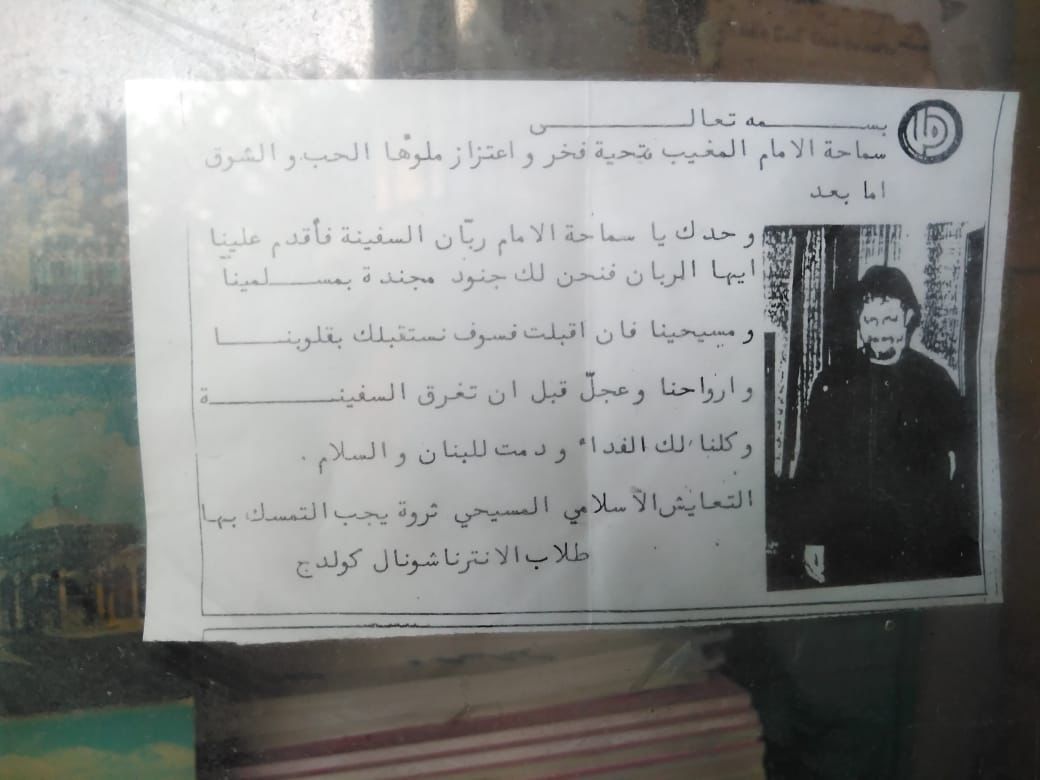 بسمه تعالى
سماحة الامام المغيب تحية فخر و اعتزاز ملؤها الحب و الشوق
اما بعد
و حدك يا سماحة الامام ربّان السفينة فأقدم علينا
ايها الربان فنحن لك جنود مجندة بمسلمينا
و مسيحينا فان اقبلت فسوف نستقبلك بقلوبنا
و ارواحنا وعجلّ قبل ان تغرق السفينة
و كلنا لك الفداء و دمت للبنان و السلام .
التعايش الاسلامي المسيحي ثروة يجب التمسك بها
طلاب الانترناشونال كولدج